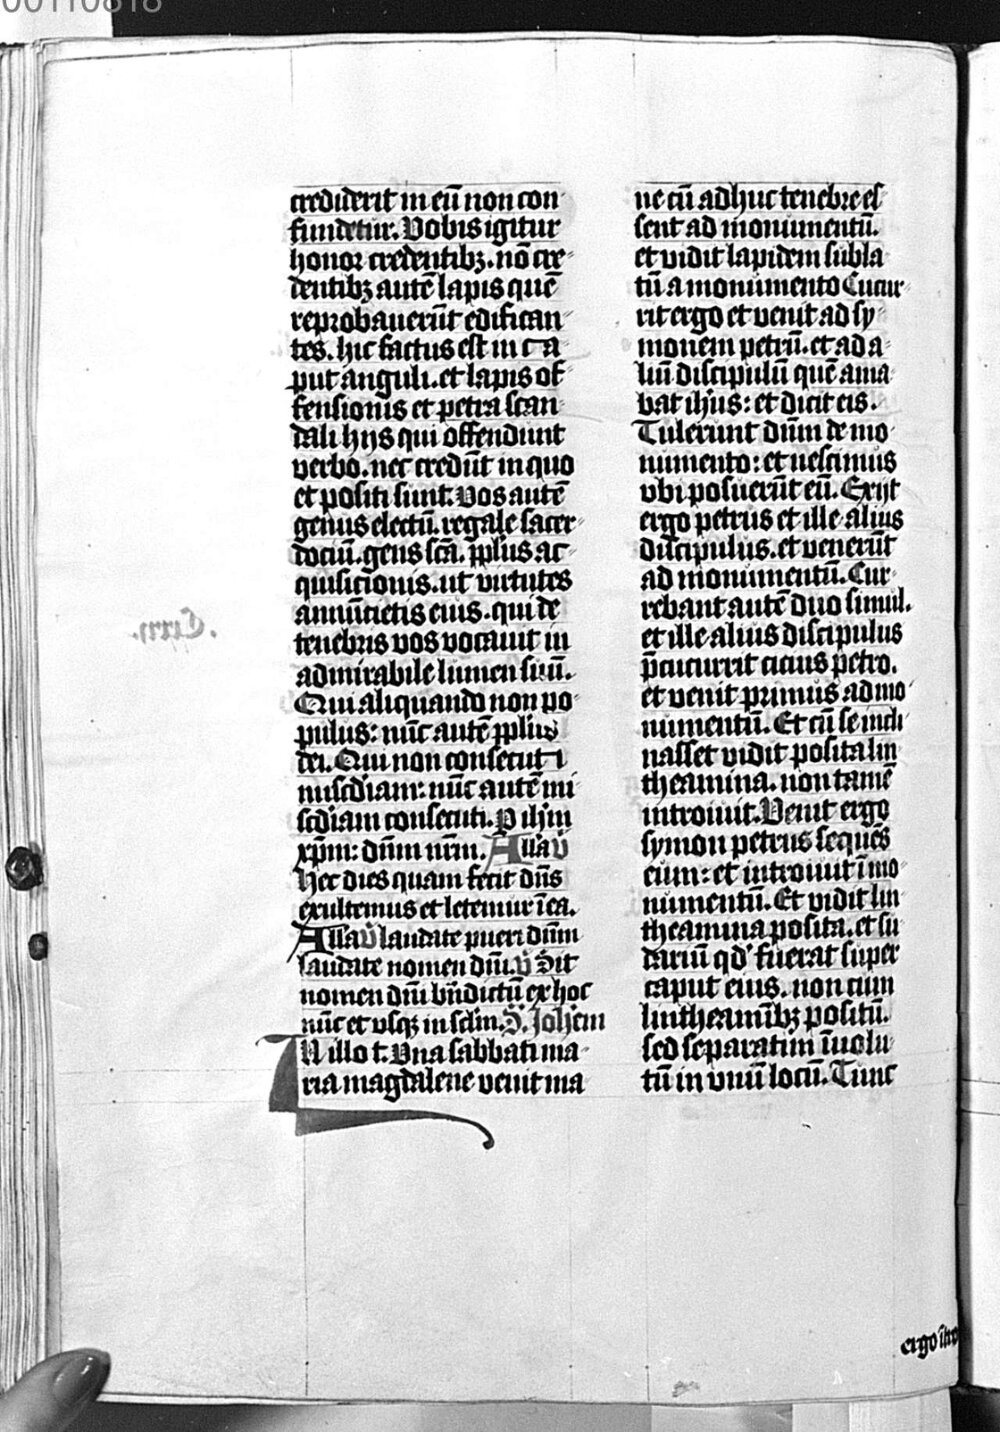 00110818
crediderit in eū non con
fundetur. Vobis igitur
honor credentibꝫ. nō cre
dentibꝫ autē lapis quē
reprobauerūt edifican
tes. hic factus est in ca
put anguli. et lapis of
fensionis et petra scan
dali hijs qui offendunt
verbo. nec credūt in quo
et positi sunt. Vos autē
genus electū. regale sacer
dociū. gens scā. pplus ac
quisicionis. ut virtutes
annūcietis eius. qui de
tenebris vos vocauit in
admirabile lumen suū.
Qui aliquando non po
pulus: nūc autē pplus
dei. Qui non consecuti
miscdiam: nūc autē mi
scdiam consecuti. P ihm
xpm: dūm nrm. Alla v
Hec dies quam fecit dūs
exultemus et letemur ī ea.
Alla v laudate pueri dūm
laudate nomen dūi. v Sit
nomen dūi būdictū ex hoc
nūc et vsqꝫ in sclm. S. Johem
IN illo t. Vna sabbati ma
ria magdalene venit ma
ne cū adhuc tenebre es
sent ad monumentū.
et vidit lapidem subla
tū a monumento Cucur
rit ergo et venit ad sy
monem petrū. et ad a
liū discipulū quē ama
bat ihus: et dicit eis.
Tulerunt dūm de mo
numento: et nescimus
vbi posuerūt eū. Exijt
ergo petrus et ille alius
discipulus. et venerūt
ad monumentū. Cur
rebant autē duo simul.
et ille alius discipulus
p̄cucurrit cicius petro.
et venit primus ad mo
numentū. Et cū se incli
nasset vidit posita lin
theamina. non tamē
introiuit. Venit ergo
symon petrus sequēs
eum: et introiuit ī mo
numentū. Et vidit lin
theamina posita. et su
dariū qd' fuerat super
caput eius. non cum
lintheamībꝫ positū.
sed separatim īuolu
tū in vnū locū. Tunc
ergo ītro